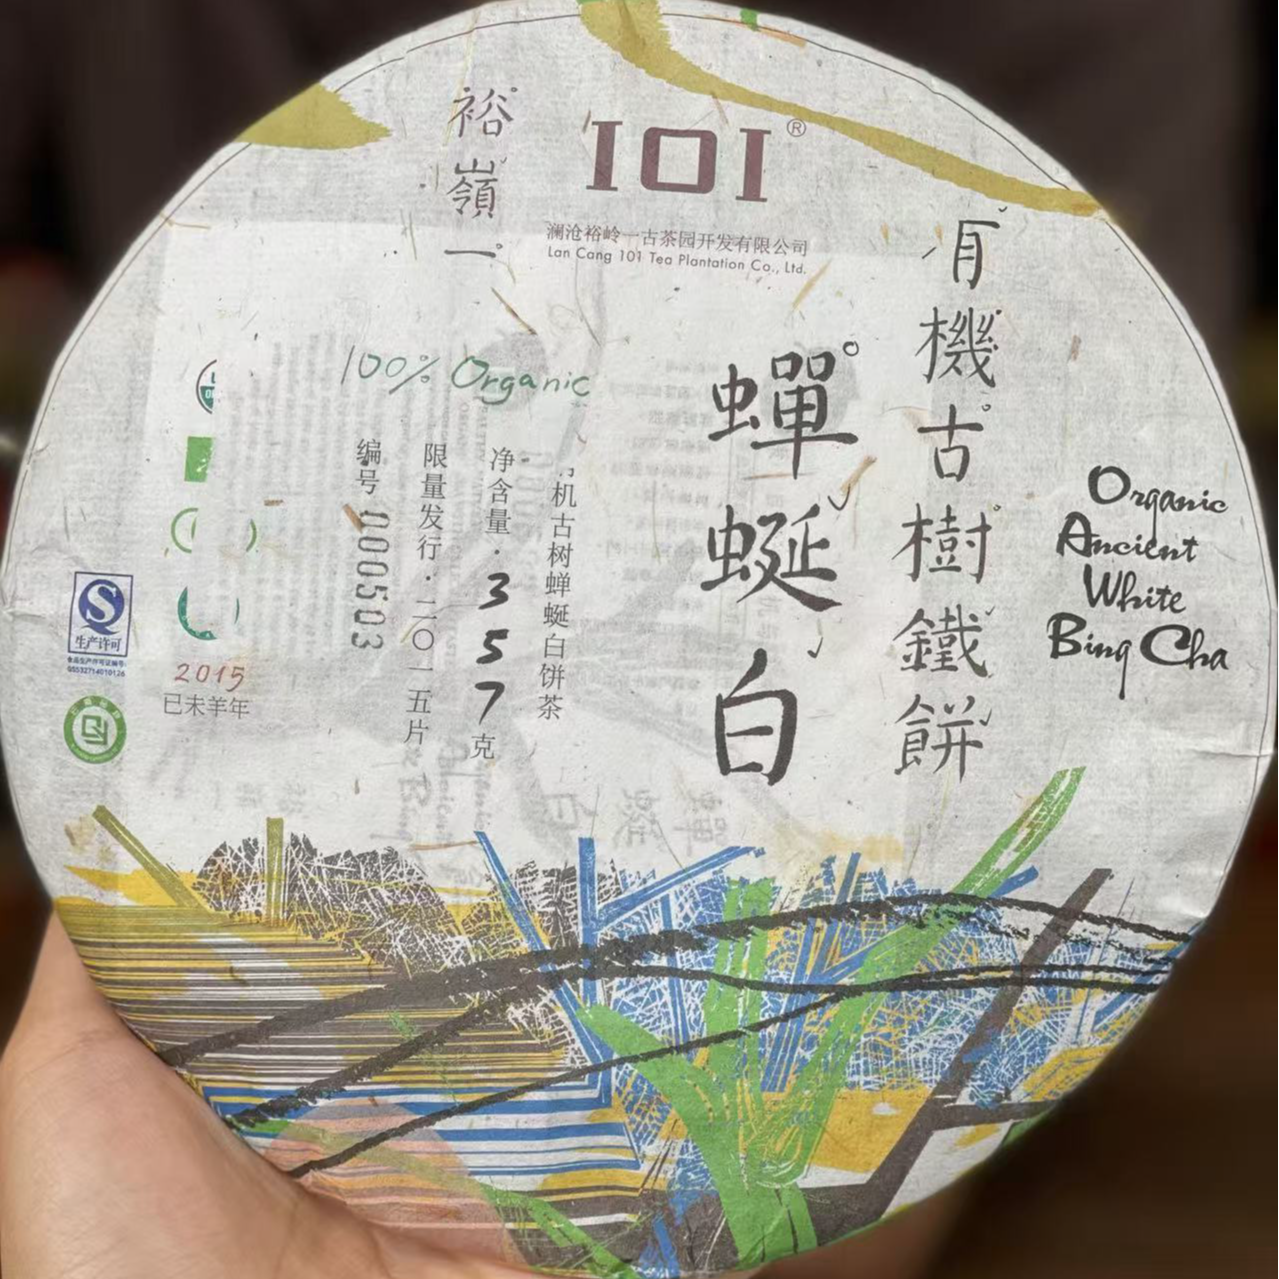 裕嶺一
101®
澜沧裕岭一古茶园开发有限公司
Lan Cang 101 Tea Plantation Co., Ltd.
有機古樹鐵餅
蟬蜒白
Organic
Ancient
White
Bing Cha
100% Organic
机古树蝉蜒白饼茶
净含量·357克
限量发行·二〇一五片
编号 000503
2015
已未羊年
生产许可